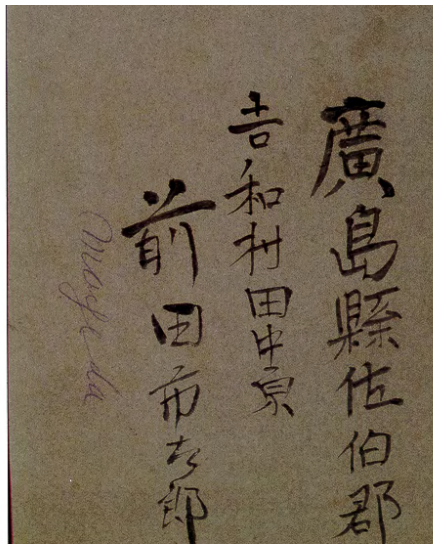 廣島縣佐伯郡
吉和村田中原
前田市太郎
Mayeda